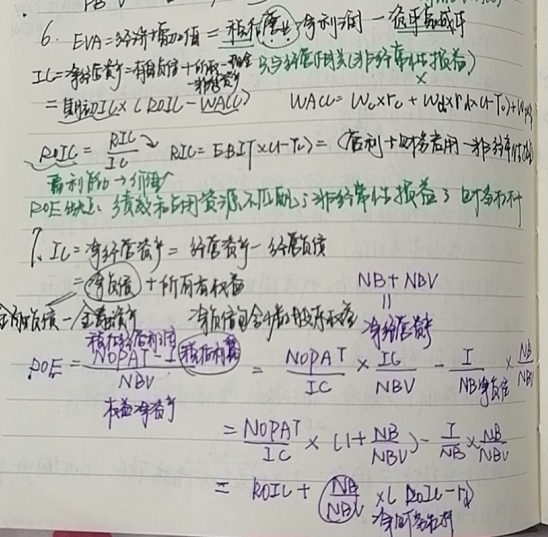 6. EVA=经济增加值 = 税后营业净利润 - 资本总成本
IC=净经营资产=有息负债+所权-现金 只与经营相关(非经常性损益)
-非经营资产 ×
= 期初IC×(ROIC-WACC) WACC= Wc×rc + Wd×rd×(1-Tc)+
ROIC = RIC/IC RIC=EBIT×(1-Tc) = (营利+财务费用-非经常性
盈利能力→价值
ROE缺点: 绩效和占用资源不匹配; 非经常性损益; 财务杠杆
7. IC=净经营资产= 经营资产-经营负债
=净负债+所有者权益 NB+NBV
金融负债-金融资产 净负债包含少数股东权益 = 净经营资产
税后经营利润 税后利息
ROE = (NOPAT - I)/NBV = NOPAT/IC × IC/NBV - I/NB净负债 × NB/NBV
权益净资产
= NOPAT/IC × (1+NB/NBV) - I/NB × NB/NBV
= ROIC + NB/NBV ×( ROIC-rd)
净财务杠杆